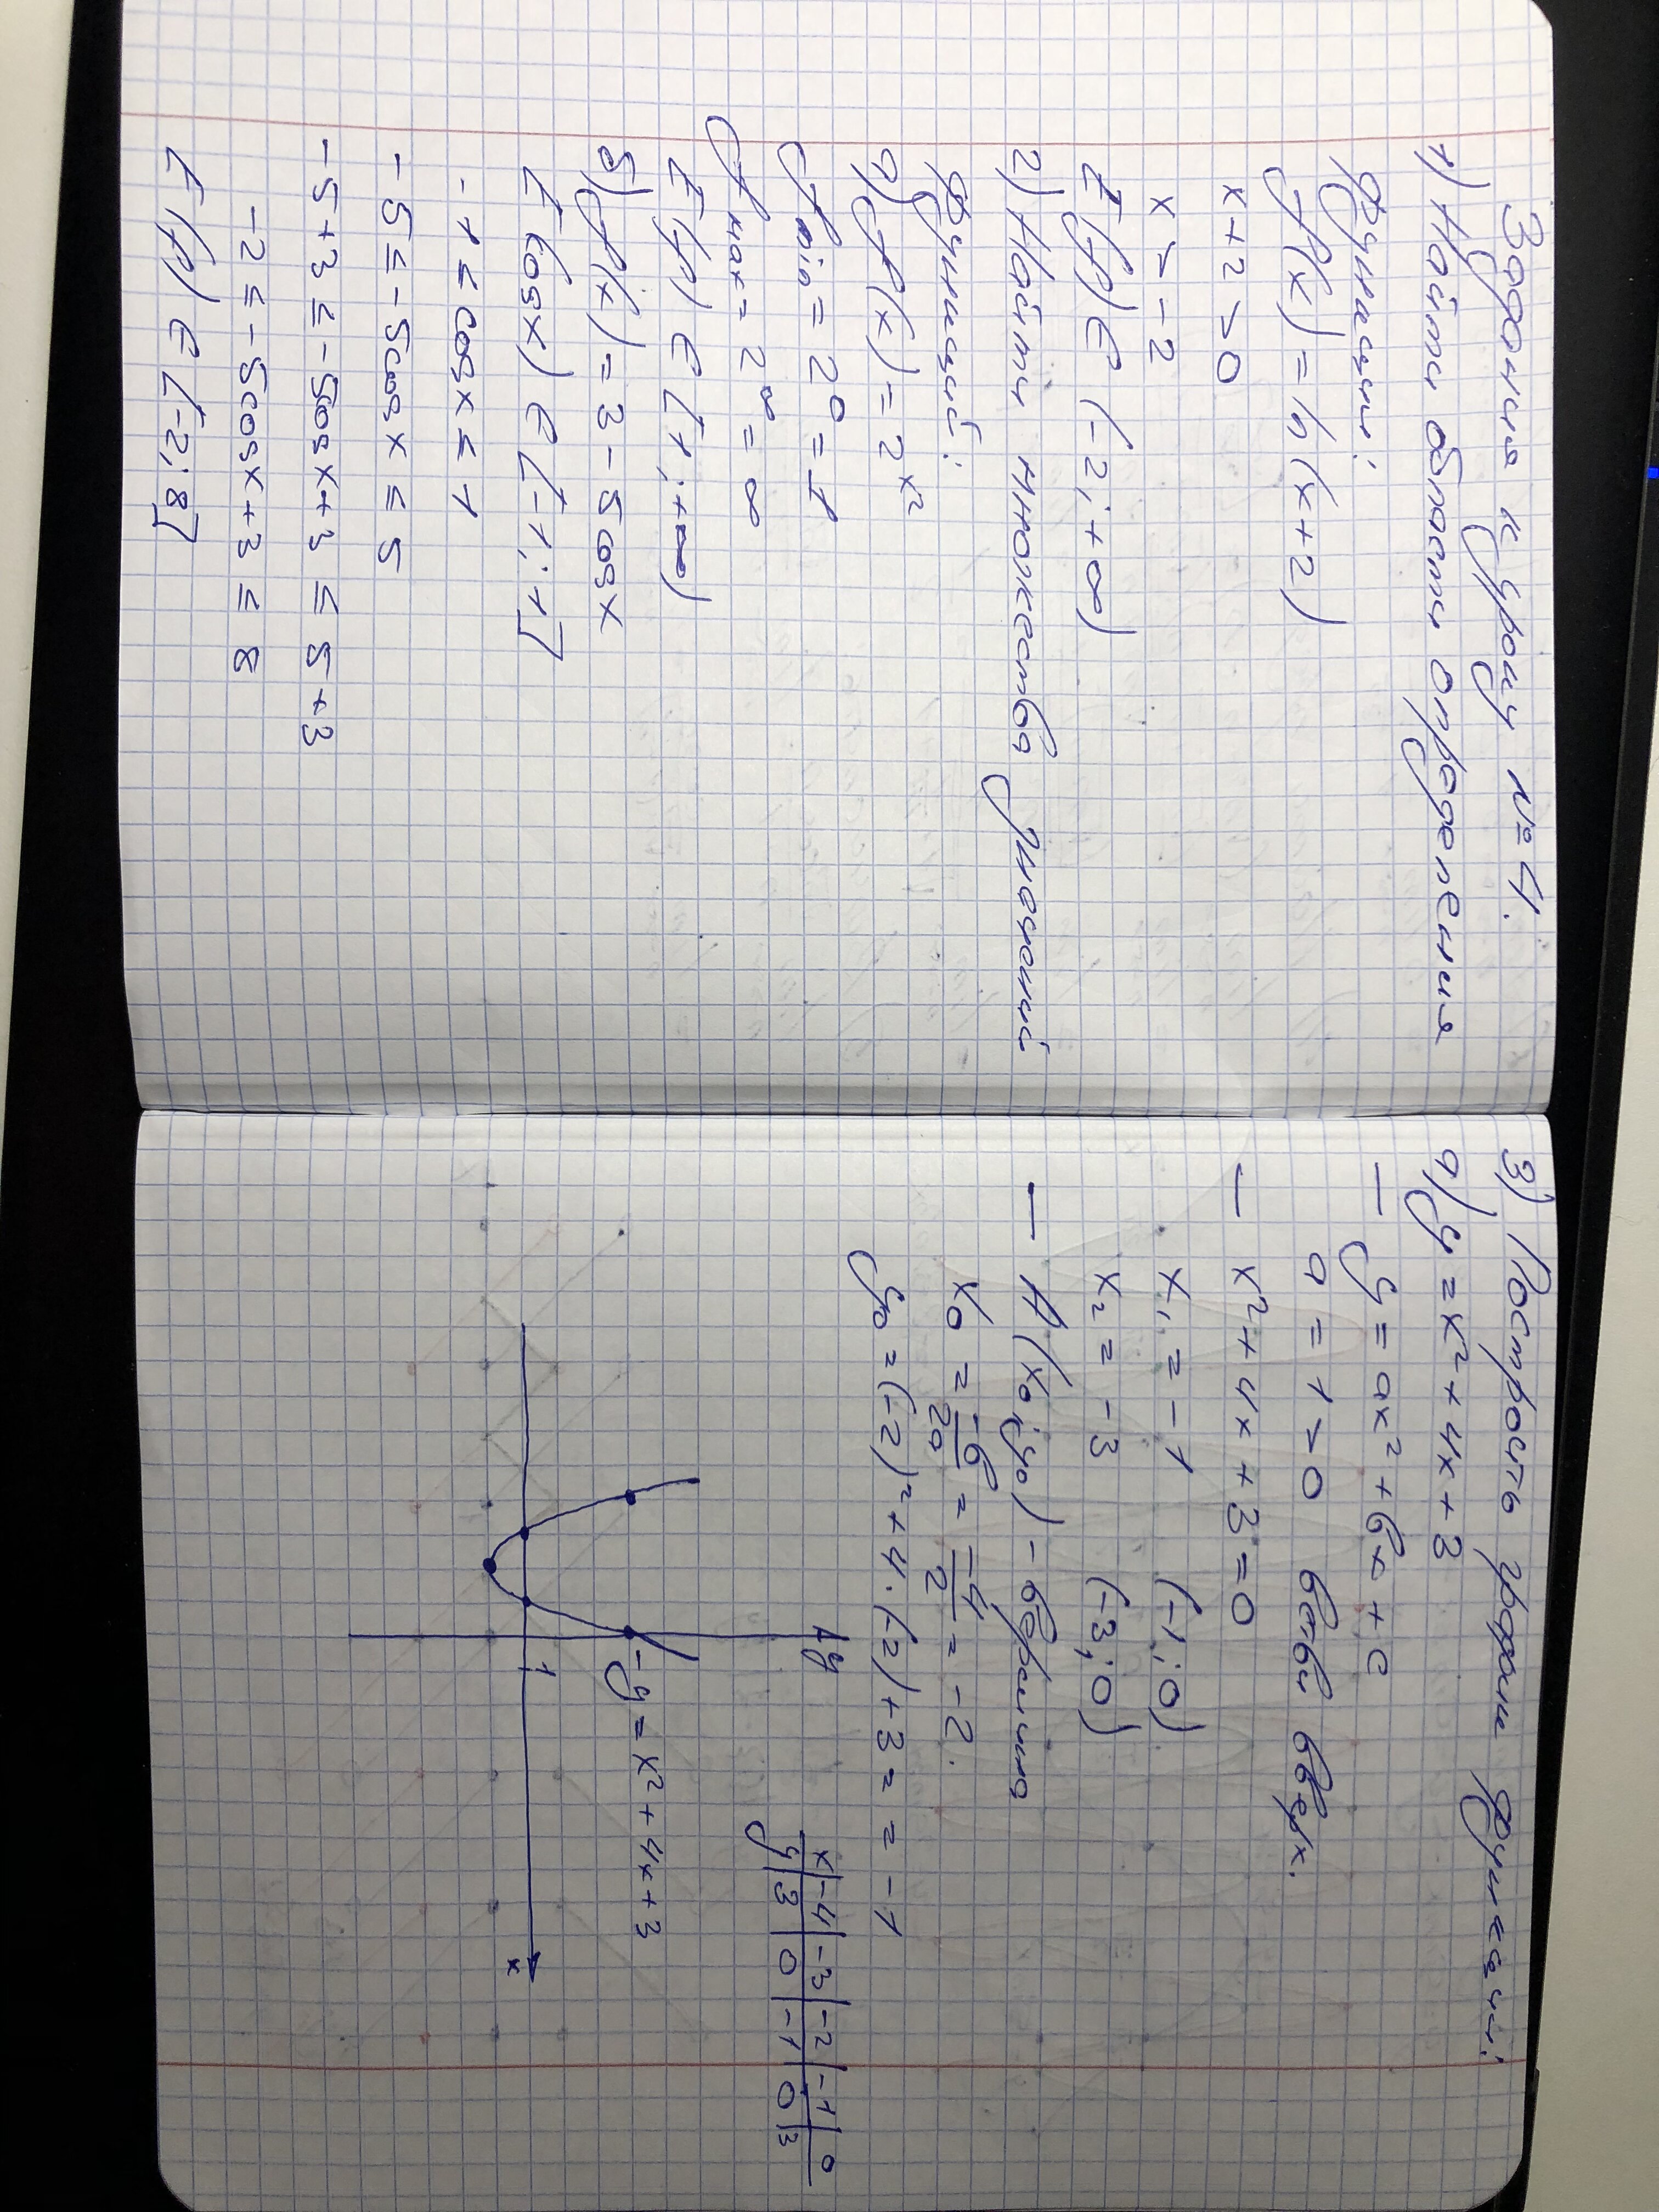 Задания к уроку №4.
1) Найти области определения
функции:
f(x) = ln(x+2)
x+2 > 0
x > -2
E(f) ∈ (-2; +∞)
2) Найти множества значений
функций:
а) f(x) = 2^x²
f min = 2⁰ = 1
f max = 2^∞ = ∞
E(f) ∈ [1; +∞)
б) f(x) = 3 - 5cosx
E(cosx) ∈ [-1; 1]
-1 ≤ cosx ≤ 1
-5 ≤ -5cosx ≤ 5
-5+3 ≤ -5cosx+3 ≤ 5+3
-2 ≤ -5cosx+3 ≤ 8
E(f) ∈ [-2; 8]
3) Построить графики функции:
а) y = x² + 4x + 3
— y = ax² + bx + c
a = 1 > 0 ветви вверх.
— x² + 4x + 3 = 0
x₁ = -1 (-1; 0)
x₂ = -3 (-3; 0)
— A(x₀; y₀) - вершина
x₀ = -b/2a = -4/2 = -2.
y₀ = (-2)² + 4·(-2) + 3 = = -1
x | -4 | -3 | -2 | -1 | 0
y | 3 | 0 | -1 | 0 | 3
y
y = x² + 4x + 3
1
x